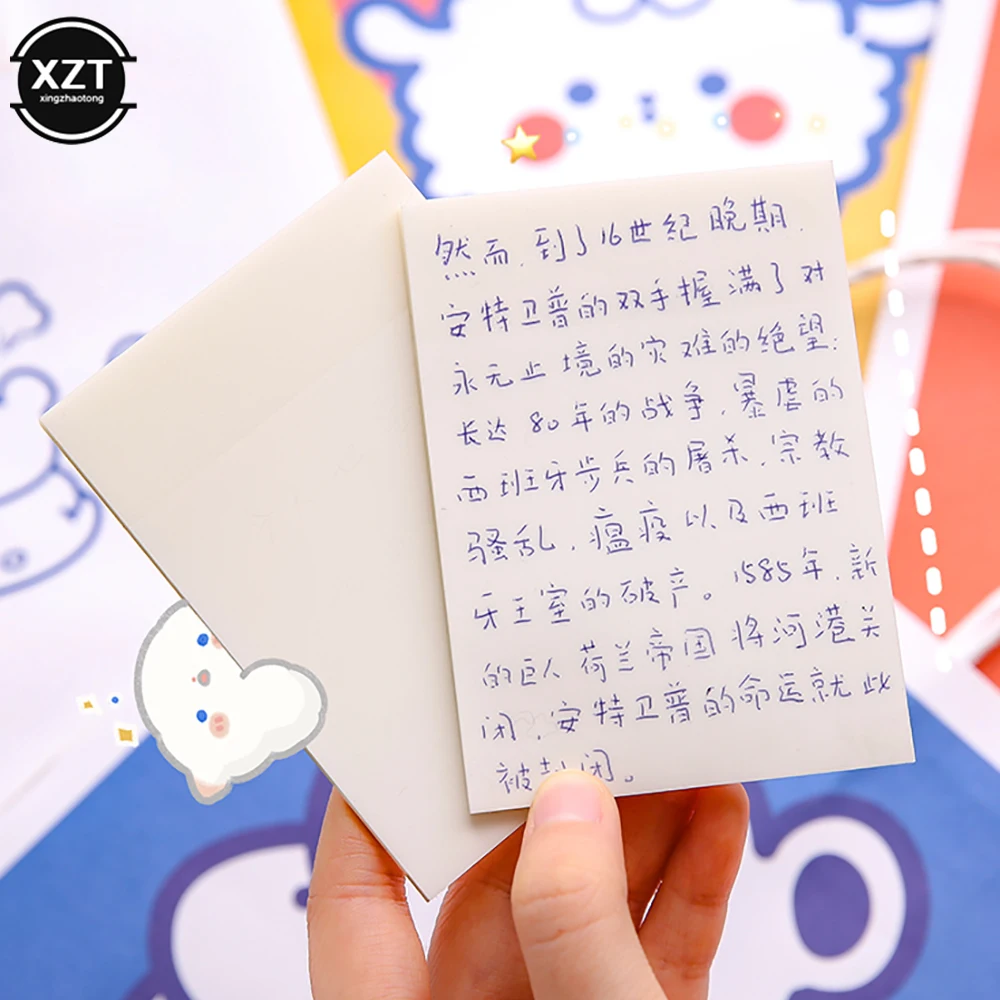 XZT
xingzhaotong
然而,到了16世纪晚期,
安特卫普的双手握满了对
永无止境的灾难的绝望:
长达80年的战争,暴虐的
西班牙步兵的屠杀,宗教
骚乱,瘟疫以及西班
牙王室的破产。1585年,新
的巨人荷兰帝国将河港关
闭,安特卫普的命运就此
被封闭。